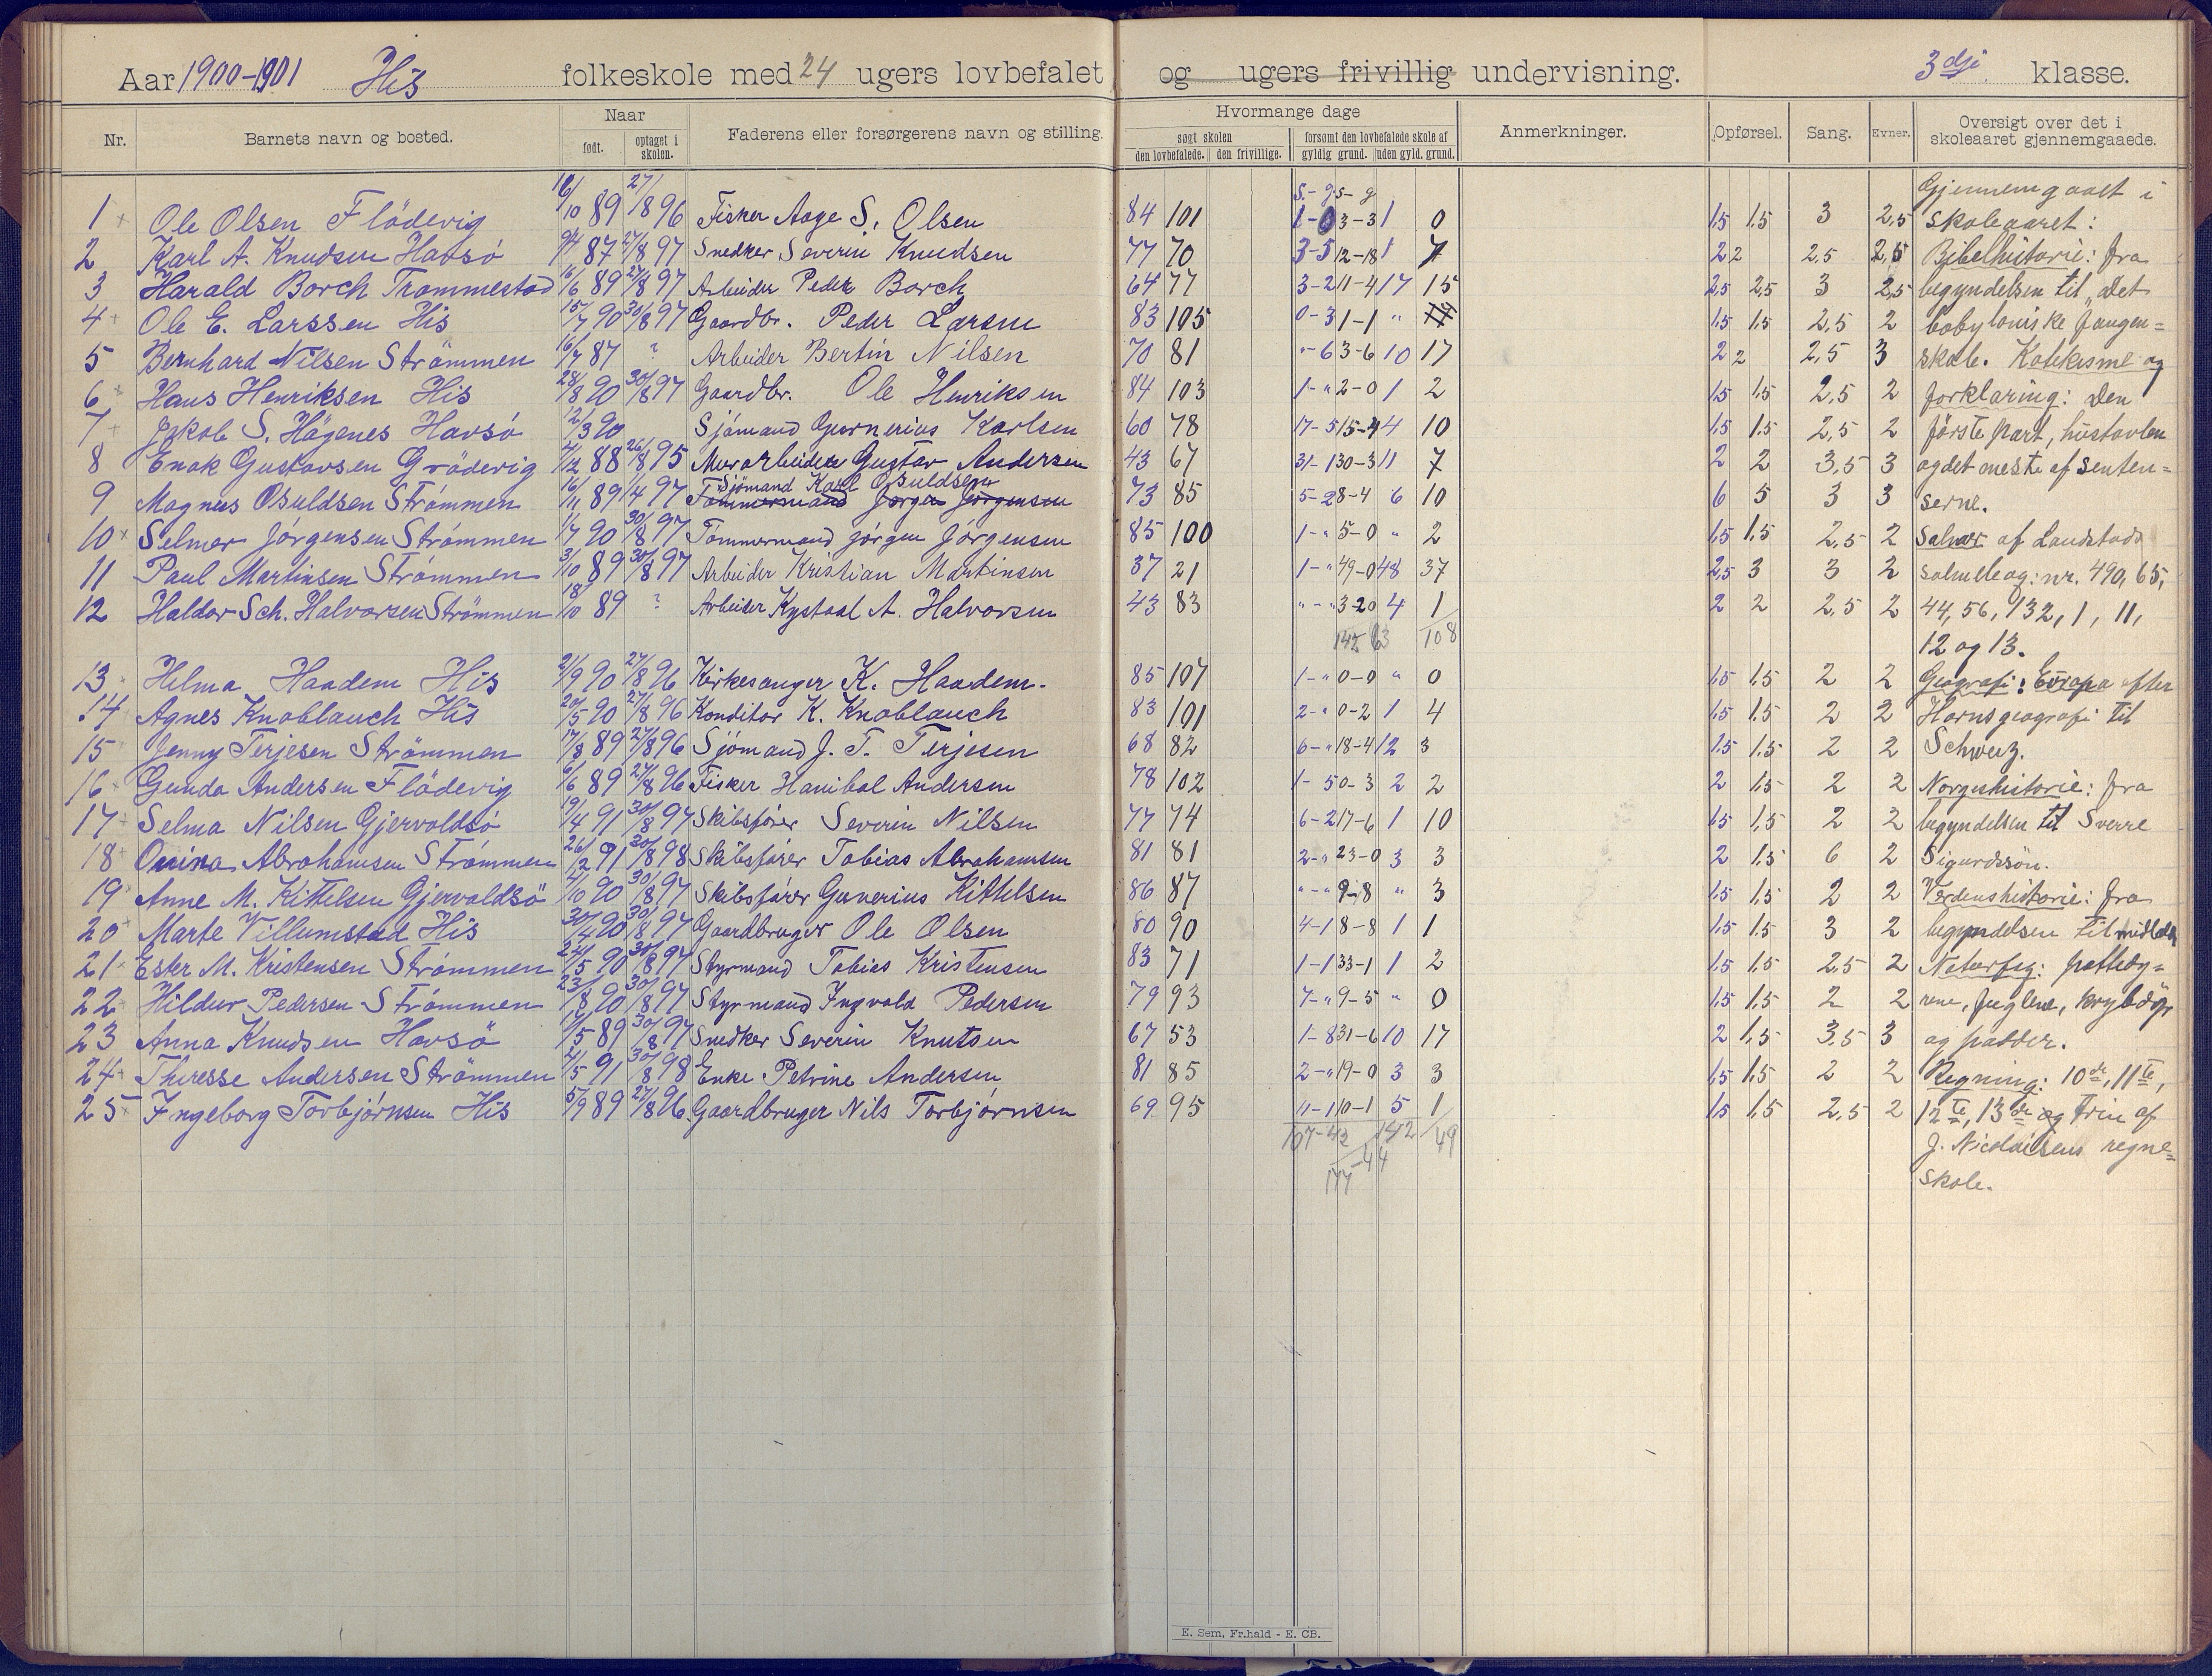 Aar 1900-1901 His folkeskole med 24 ugers lovbefalet og ugers frivillig undervisning. 3dje klasse.
Nr. Barnets navn og bosted. Naar født. optaget i skolen. Faderens eller forsørgerens navn og stilling. Hvormange dage søgt skolen den lovbefalede. den frivillige. forsømt den lovbefalede skole af gyldig grund. uden gyld. grund. Anmerkninger. Opførsel. Sang. Evner. Oversigt over det i skoleaaret gjennemgaaede.
s.- g s- g Gjennemgaaet i
1 Ole Olsen Flödevig 16/10 89 27/8 96 Fisker Aage S. Olsen 84 101 1-0 3-3 1 0 1,5 1,5 3 2,5 skoleaaret:
2 Karl A. Knudsen Havsö 9/4 87 27/8 97 Snedker Severin Knudsen 77 70 3-5 12-18 1 7 2 2 2,5 2,5 Bibelhistorie: fra
3 Harald Borch Trommestad 16/6 89 27/8 97 Arbeider Peder Borch 64 77 3-2 11-4 17 15 2,5 2,5 3 2,5 begyndelsen til "Det
4 Ole E. Larssen His 15/7 90 30/8 97 Gaardbr. Peder Larsen 83 105 0-3 1-1 " 1,5 1,5 2,5 2 babyloniske fangen=
5 Bernhard Nilsen Strömmen 16/7 87 ? Arbeider Bertin Nilsen 70 81 "-6 3-6 10 17 2 2 2,5 3 skab. Katekisme og
6 Hans Henriksen His 28/8 90 30/8 97 Gaardbr. Ole Henriksen 84 103 1-" 2-0 1 2 1,5 1,5 2,5 2 forklaring: Den
7 Jakob S. Högenes Havsö 12/3 90 Sjömand Gunerius Karlsen 60 78 17-5 15-4 4 10 1,5 1,5 2,5 2 förste part, hustavlen
8 Enok Gustavsen Grödevig 4/12 88 26/8 95 Murarbeider Gustav Andersen 43 67 31-1 30-3 11 7 2 2 3,5 3 og det meste af senten=
Sjömand Karl Osuldsen
9 Magnus Osuldsen Strömmen 16/11 89 1/4 97 Tömmermand Jörgen Jörgensen 73 85 5-2 8-4 6 10 6 5 3 3 serne.
10 Selmer Jörgensen Strömmen 1/7 90 30/8 97 Tömmermand Jörgen Jörgensen 85 100 1-" 5-0 " 2 1,5 1,5 2,5 2 Salmer af Landstads
11 Paul Martinsen Strömmen 3/10 89 30/8 97 Arbeider Kristian Martinsen 37 21 1-" 49-0 48 37 2,5 3 3 2 salmebog: nr. 490, 65,
12 Haldor Sch. Halvorsen Strömmen 18/10 89 ? Arbeider Kystaal A. Halvorsen 43 83 "-" 3-20 4 1 2 2 2,5 2 44, 56, 132, 1, 11,
145 63 108 12 og 13.
13 Helma Haadem His 21/9 90 27/8 96 Kirkesanger K. Haadem. 85 107 1-" 0-0 " 0 1,5 1,5 2 2 Geografi: Europa efter
14 Agnes Knoblauch His 20/5 90 27/8 96 Konditor K. Knoblauch 83 101 2-" 0-2 1 4 1,5 1,5 2 2 Horns geografi til
15 Jenny Terjesen Strömmen 17/8 89 27/8 96 Sjömand J. T. Terjesen 68 82 6-" 18-4 12 3 1,5 1,5 2 2 Schweiz.
16 Gunda Andersen Flödevig 6/6 89 27/8 96 Fisker Hanibal Andersen 78 102 1-5 0-3 2 2 2 1,5 2 2 Norgeshistorie: fra
17 Selma Nilsen Gjervoldsö 19/4 91 30/8 97 Skibsförer Severin Nilsen 77 74 6-2 17-6 1 10 1,5 1,5 2 2 begyndelsen til Sverre
18 Abrahamsen Strömmen 26/2 91 30/8 98 Skibsförer Tobias Abrahamsen 81 81 2-" 23-0 3 3 2 1,5 6 2 Sigurdssön.
19 Anne M. Kittelsen Gjervoldsö 4/10 90 30/8 97 Skibsförer Gunerius Kittelsen 86 87 "-" 9-8 " 3 1,5 1,5 2 2 Verdenshistorie: fra
20 Marte Villumstad His 30/4 90 30/8 97 Gaardbruger Ole Olsen 80 90 4-1 8-8 1 1 1,5 1,5 3 2 begyndelsen til
21 Ester M. Kristensen Strömmen 24/5 90 30/8 97 Styrmand Tobias Kristensen 83 71 1-1 33-1 1 2 1,5 1,5 2,5 2 Naturfag: pattedy=
22 Hildur Pedersen Strömmen 23/8 90 30/8 97 Styrmand Ingvald Pedersen 79 93 7-" 9-5 " 0 1,5 1,5 2 2 rene, fuglene, krybdyr
23 Anna Knudsen Havsö 1/5 89 30/8 97 Snedker Severin Knutsen 67 53 1-8 31-6 10 17 2 1,5 3,5 3 og padder.
24 Theresse Andersen Strömmen 4/5 91 30/8 98 Enke Petrine Andersen 81 85 2-" 19-0 3 3 1,5 1,5 2 2 Regning: 10de, 11te,
25 Ingeborg Torbjörnsen His 5/9 89 27/8 96 Gaardbruger Nils Torbjörnsen 69 95 11-1 10-1 5 1 1,5 1,5 2,5 2 12te, 13de og trin af
107-42 142 49 J. Nicolaisens regne=
177-44 skole.
E. Sem, Fr.hald - E. CB.